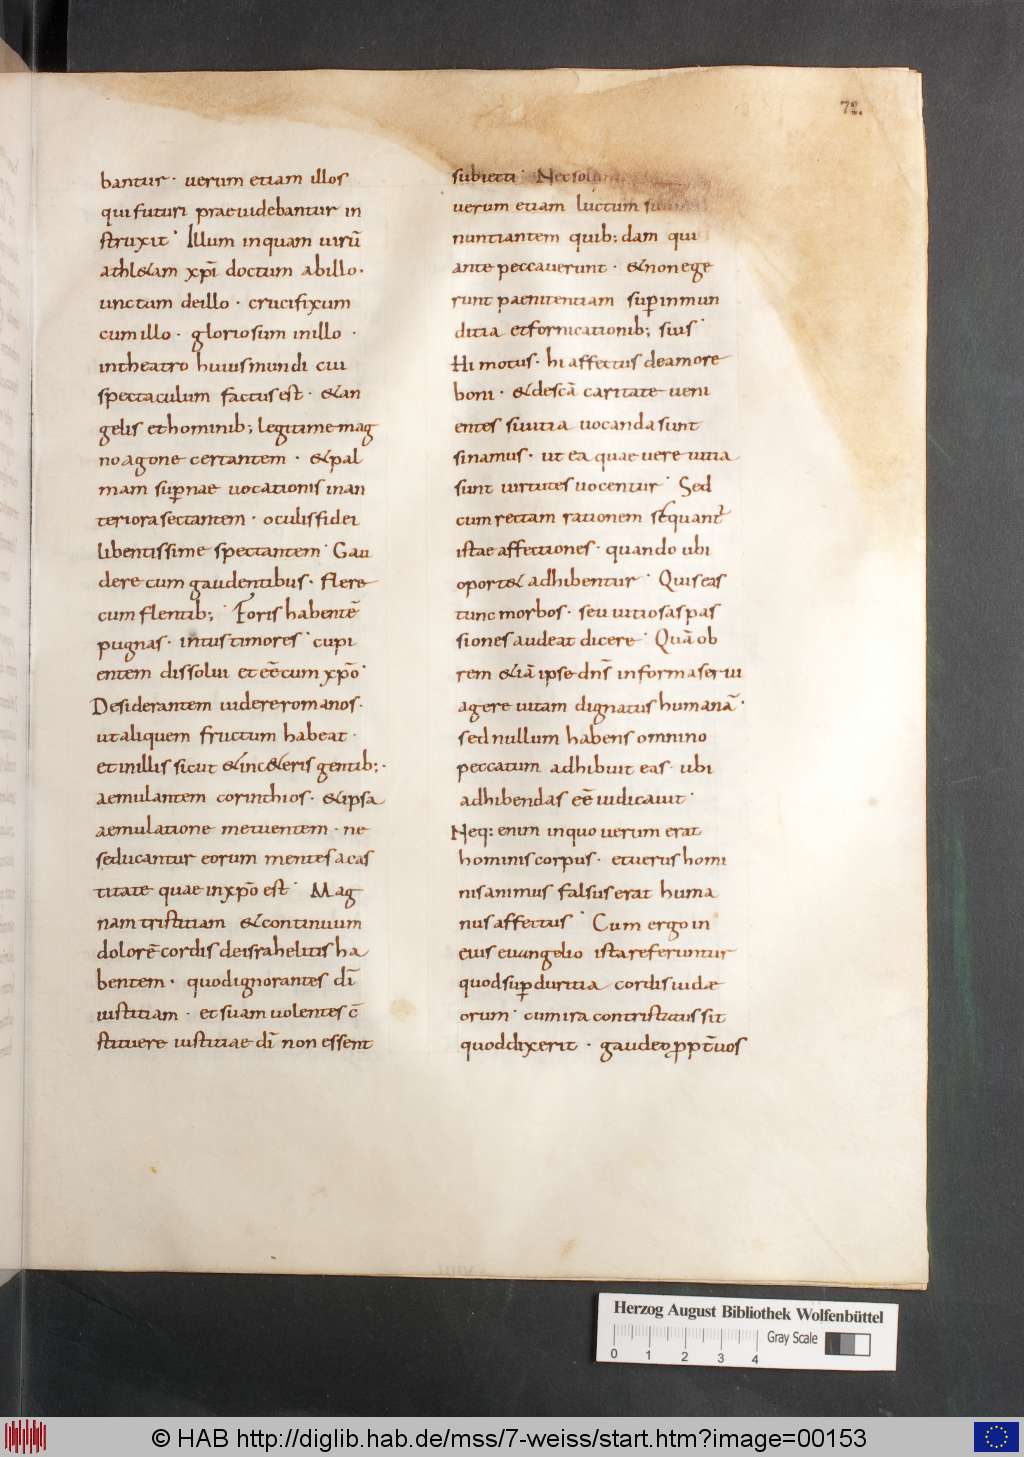 72.
bantur · uerum etiam illos
qui futuri praeuidebantur in
struxit · Illum inquam uirū
athl&am xp̄i doctum abillo ·
unctum deillo · crucifixum
cum illo · gloriosum inillo ·
intheatro huius mundi cui
spectaculum factus est · &an
gelis ethominib; legitime mag
no agone certantem · &pal
mam sup̱nae uocationis inan
teriora sectantem · oculis fidei
libentissime spectantem · Gau
dere cum gaudentibus · flere
cum flentib; · Foris habentē
pugnas · intus timores · cupi
entem dissolui et eē cum xp̄o ·
Desiderantem uidere romanos ·
ut aliquem fructum habeat ·
et inillis sicut &inc&eris gentib; ·
aemulantem corinthios · &ipsa
aemulatione metuentem · ne
seducantur eorum mentes a cas
titate quae inxp̄o est · Mag
nam tristitiam &continuum
dolorē cordis deisrahelitis ha
bentem · quod ignorantes dī
iustitiam · et suam uolentes c̄
stituere iustitiae dī non essent
subiecti · Nec
uerum etiam luctum
nuntiantem quib; dam qui
ante peccauerunt · &non ege
runt paenitentiam sup̱ inmun
ditia et fornicationib; suis ·
Hi motus · hi affectus de amore
boni · &descā caritate ueni
entes si uitia uocanda sunt
sinamus · ut ea quae uere uitia
sunt uirtutes uocentur · Sed
cum rectam rationem sequant᷑
istae affectiones · quando ubi
oport& adhibentur · Quis eas
tunc morbos · seu uitiosas pas
siones audeat dicere · Quā ob
rem &iā ipse dn̄s informa serui
agere uitam dignatus humanā ·
sed nullum habens omnino
peccatum adhibuit eas · ubi
adhibendas eē iudicauit ·
Neq: enim inquo uerum erat
hominis corpus · et uerus homi
nis animus falsus erat huma
nus affectus · Cum ergo in
eius euangelio ista referuntur
quod sup̱ duritia cordis iudæ
orum · cum ira contristatus sit
quod dixerit · gaudeo ꝓpt̄ uos
Herzog August Bibliothek Wolfenbüttel
Gray Scale
0 1 2 3 4
© HAB http://diglib.hab.de/mss/7-weiss/start.htm?image=00153